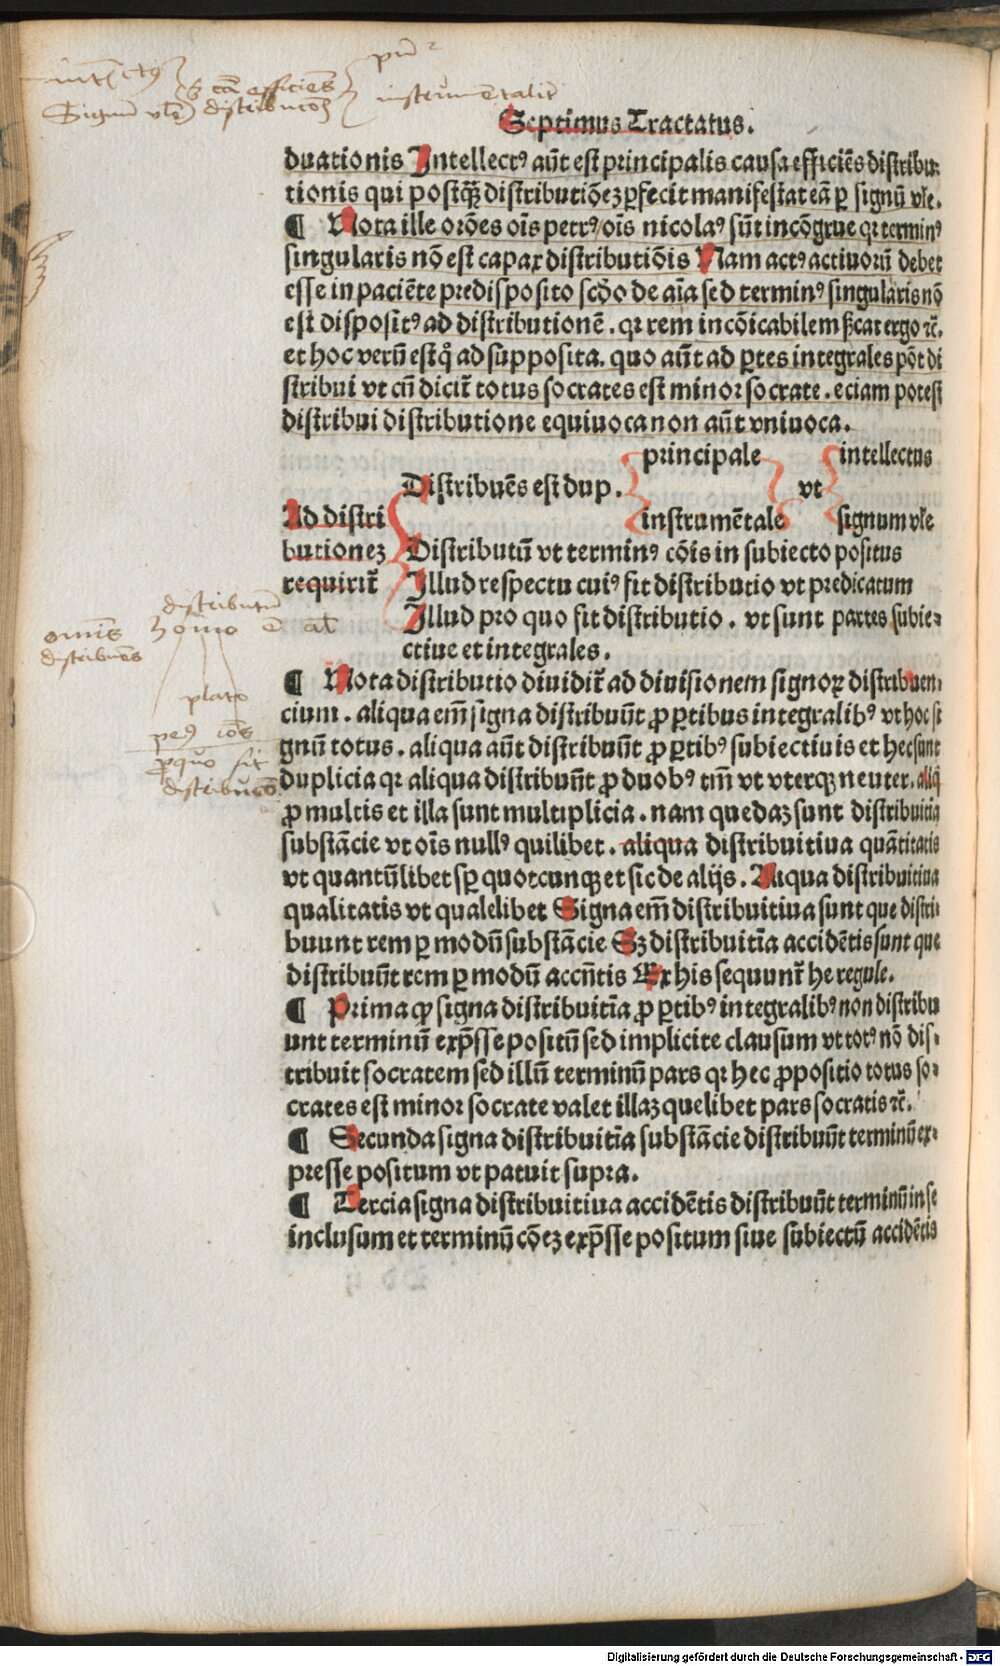 Septimus Tractatus.
duationis Intellectꝰ aūt est principalis causa efficiēs distribu⸗
tionis qui postq̄ꝫ distributiōeꝫ ꝑfecit manifestat eā ꝑ signū vl̄e.
¶ Nota ille orōes oīs petrꝰ oīs nicolaꝰ sūt incōgrue qꝛ terminꝰ
singularis nō est capax distributiōis Nam actꝰ actiuoꝝū debet
esse in paciēte predisposito scd̄o de aīa sed terminꝰ singularis nō
est disposit9 ad distributionē. qꝛ rem incōicabilem sc̄at ergo ꝛc̄.
et hoc verū est qͦ ad supposita. quo aūt ad ꝑtes integrales pōt di
stribui vt cū dicit̄ totus socrates est minor socrate. eciam potest
distribui distributione equiuoca non aūt vniuoca.
principale intellectus
Distribuēs est dup. vt
Ad distri instrumētale signum vl̄e
butioneꝫ Distributū vt terminꝰ cōis in subiecto positus
requirit̄ Illud respectu cuiꝰ fit distributio vt predicatum
Illud pro quo fit distributio. vt sunt partes subie⸗
ctiue et integrales.
¶ Nota distributio diuidit̄ ad diuisionem signoꝝ distribuen⸗
cium. aliqua em̄ signa distribuūt ꝓ ꝑtibus integralibꝰ vt hoc si
gnū totus. aliqua aūt distribuūt ꝓ ꝑtibꝰ subiectiuis et hec sunt
duplicia qꝛ aliqua distribuūt ꝓ duobꝰ tm̄ vt vterqꝫ neuter. aliq̄
ꝓ multis et illa sunt multiplicia. nam quedaꝫ sunt distribuitiа
substācie vt oīs nullꝰ quilibet. aliqua distribuitiua quātitatis
vt quantūlibet sꝑ quotcunqꝫ et sic de alijs. Aliqua distribuitiua
qualitatis vt qualelibet Signa em̄ distribuitiua sunt que distri⸗
buunt rem ꝑ modū substācie Sꝫ distribuitīa accidētis sunt que
distribuūt rem ꝑ modū accn̄tis Ex his sequunt̄ he regule.
¶ Prima ꝙ signa distribuitīa ꝓ ꝑtibꝰ integralibꝰ non distribu
unt terminū exp̄sse positū sed implicite clausum vt totꝰ nō dis⸗
tribuit socratem sed illū terminū pars qꝛ hec ꝓpositio totus so⸗
crates est minor socrate valet illaꝫ quelibet pars socratis ꝛc̄.
¶ Secunda signa distribuitīa substācie distribuūt terminū ex⸗
presse positum vt patuit supra.
¶ Tercia signa distribuitiua accidētis distribuūt terminū in se
inclusum et terminū cōeꝫ exp̄sse positum siue subiectū accidētis
distributū
omīs homo ē al̄
distribuēs
plato
pro quo fit
distribucō
Digitalisierung gefördert durch die Deutsche Forschungsgemeinschaft - DFG